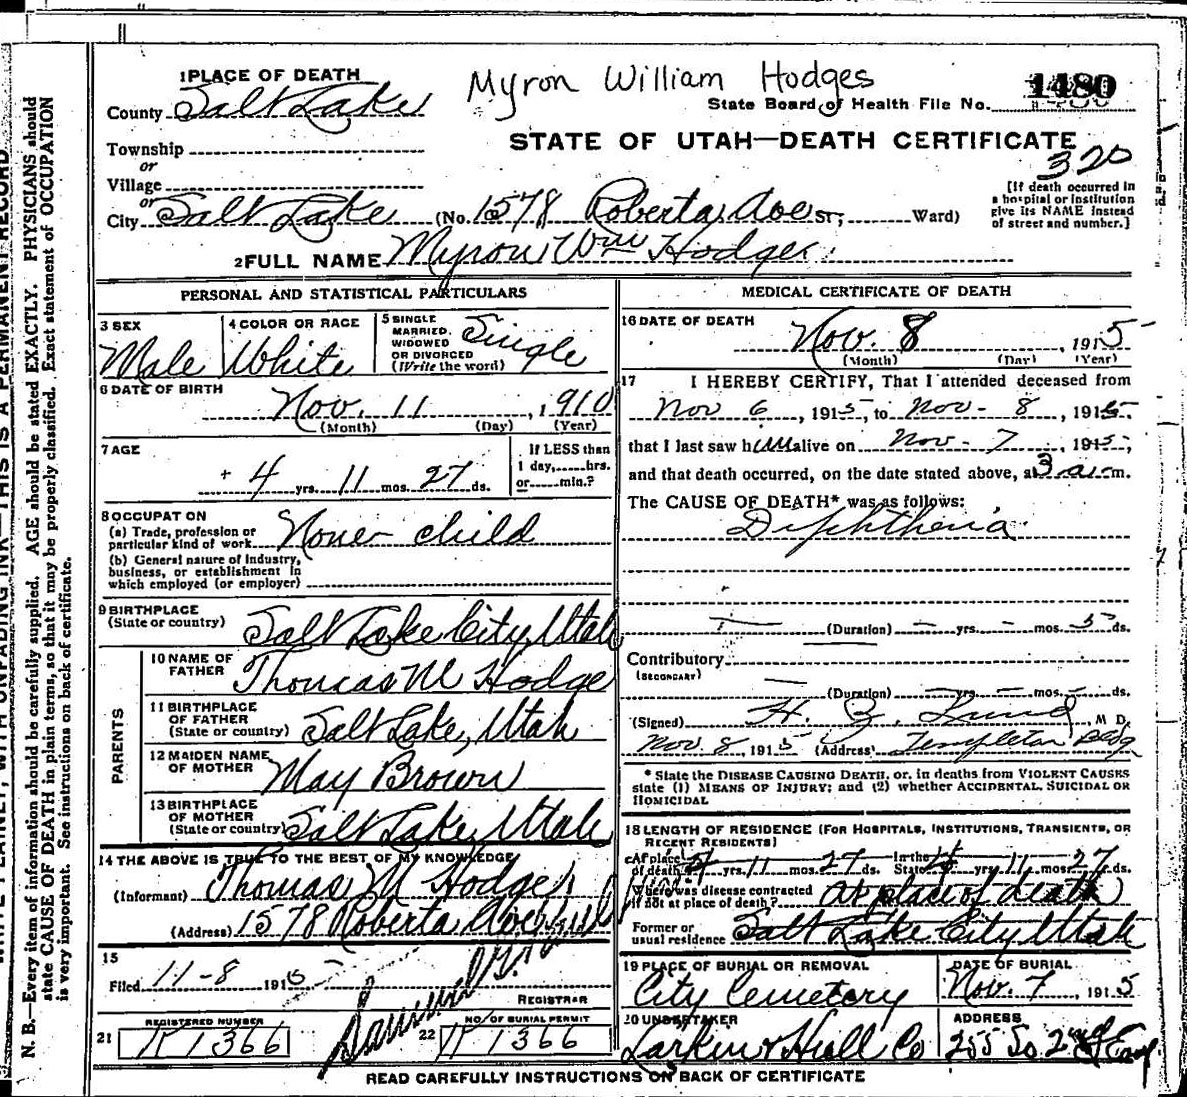 1 PLACE OF DEATH
Myron William Hodges
1480
County Salt Lake
State Board of Health File No.
STATE OF UTAH—DEATH CERTIFICATE
320
Township
or
Village
or
City Salt Lake (No. 1578 Roberta Ave ST; Ward)
[If death occurred in
a hospital or institution
give its NAME instead
of street and number.]
2 FULL NAME Myron Wm Hodges
PERSONAL AND STATISTICAL PARTICULARS
3 SEX
Male
4 COLOR OR RACE
White
5 SINGLE
MARRIED,
WIDOWED
OR DIVORCED
(Write the word)
Single
6 DATE OF BIRTH
Nov. 11, 1910
(Month) (Day) (Year)
7 AGE
4 yrs. 11 mos. 27 ds.
If LESS than
1 day, hrs.
or min.?
8 OCCUPATION
(a) Trade, profession or
particular kind of work None child
(b) General nature of industry,
business, or establishment in
which employed (or employer)
9 BIRTHPLACE
(State or country) Salt Lake City, Utah
PARENTS
10 NAME OF
FATHER Thomas M Hodges
11 BIRTHPLACE
OF FATHER
(State or country) Salt Lake, Utah
12 MAIDEN NAME
OF MOTHER May Brown
13 BIRTHPLACE
OF MOTHER
(State or country) Salt Lake, Utah
14 THE ABOVE IS TRUE TO THE BEST OF MY KNOWLEDGE
(Informant) Thomas M Hodges
(Address) 1578 Roberta Ave
15
Filed 11-8 1915
REGISTRAR
21 REGISTERED NUMBER
1366
22 NO. OF BURIAL PERMIT
1366
MEDICAL CERTIFICATE OF DEATH
16 DATE OF DEATH
Nov. 8, 1915
(Month) (Day) (Year)
17 I HEREBY CERTIFY, That I attended deceased from
Nov 6, 1915, to Nov - 8, 1915,
that I last saw him alive on Nov - 7, 1915,
and that death occurred, on the date stated above, at 3 a.m.
The CAUSE OF DEATH* was as follows:
Diphtheria
(Duration) — yrs. — mos. 5 ds.
Contributory
(SECONDARY)
(Duration) — yrs. — mos. — ds.
(Signed) H. Z. Lund, M D.
Nov. 8, 1915 (Address) Templeton Bldg
* State the DISEASE CAUSING DEATH, or, in deaths from VIOLENT CAUSES
state (1) MEANS OF INJURY; and (2) whether ACCIDENTAL, SUICIDAL OR
HOMICIDAL
18 LENGTH OF RESIDENCE (FOR HOSPITALS, INSTITUTIONS, TRANSIENTS, OR
RECENT RESIDENTS)
At place
of death 4 yrs. 11 mos. 27 ds. In the State 4 yrs. 11 mos. 27 ds.
Where was disease contracted
if not at place of death? At place of death
Former or
usual residence Salt Lake City Utah
19 PLACE OF BURIAL OR REMOVAL
City Cemetery
DATE OF BURIAL
Nov. 7, 1915
20 UNDERTAKER
Larkin & Hull Co
ADDRESS
255 So. 2nd East
READ CAREFULLY INSTRUCTIONS ON BACK OF CERTIFICATE
N. B.—Every item of information should be carefully supplied. AGE should be stated EXACTLY. PHYSICIANS should
state CAUSE OF DEATH in plain terms, so that it may be properly classified. Exact statement of OCCUPATION
is very important. See instructions on back of certificate.
WRITE PLAINLY, WITH UNFADING INK—THIS IS A PERMANENT RECORD.